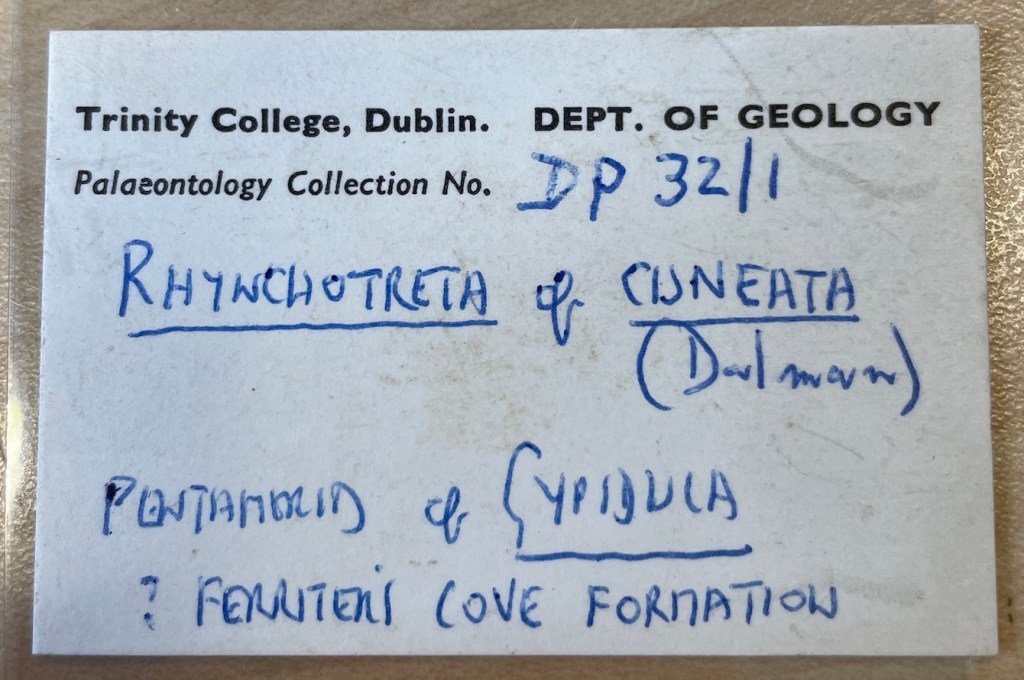 Trinity College, Dublin. DEPT. OF GEOLOGY
Palaeontology Collection No. DP 32/1
RHYNCHOTRETA cf CUNEATA
(Dalman)
PENTAMERID cf GYPIDULA
? FERRITER'S COVE FORMATION